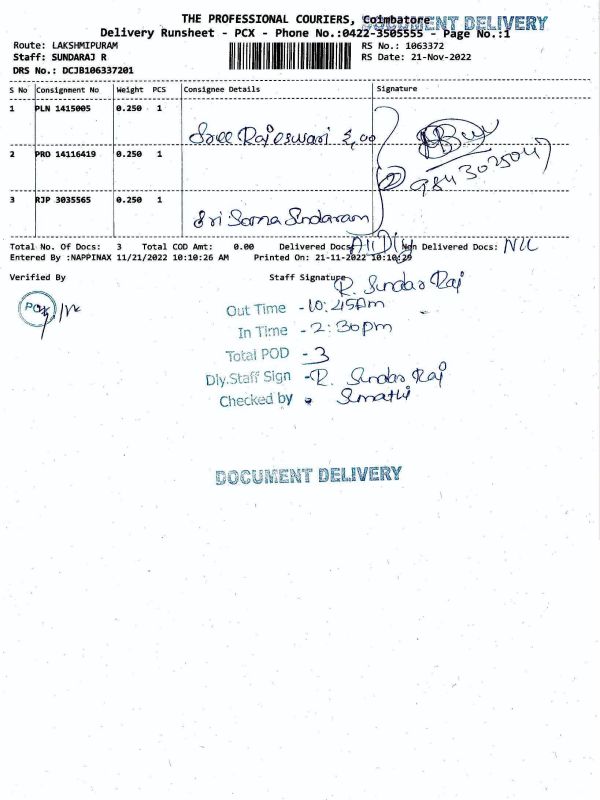 THE PROFESSIONAL COURIERS, Coimbatore
DOCUMENT DELIVERY
Delivery Runsheet - PCX - Phone No.:0422-3505555 - Page No.:1
Route: LAKSHMIPURAM
RS No.: 1063372
Staff: SUNDARAJ R
RS Date: 21-Nov-2022
DRS No.: DCJB106337201
S No Consignment No Weight PCS Consignee Details Signature
1 PLN 1415005 0.250 1
Sree Rajeswari
2 PRO 14116419 0.250 1
9843025047
3 RJP 3035565 0.250 1
Sri Sorna Sundaram
Total No. Of Docs: 3 Total COD Amt: 0.00 Delivered Docs: All Dly Non Delivered Docs: NIL
Entered By :NAPPINAX 11/21/2022 10:10:26 AM Printed On: 21-11-2022 10:10:29
Verified By Staff Signature R. Sundar Raj
Out Time - 10:45Am
In Time - 2:30pm
Total POD - 3
Dly.Staff Sign - R. Sundar Raj
Checked by Sumathi
DOCUMENT DELIVERY